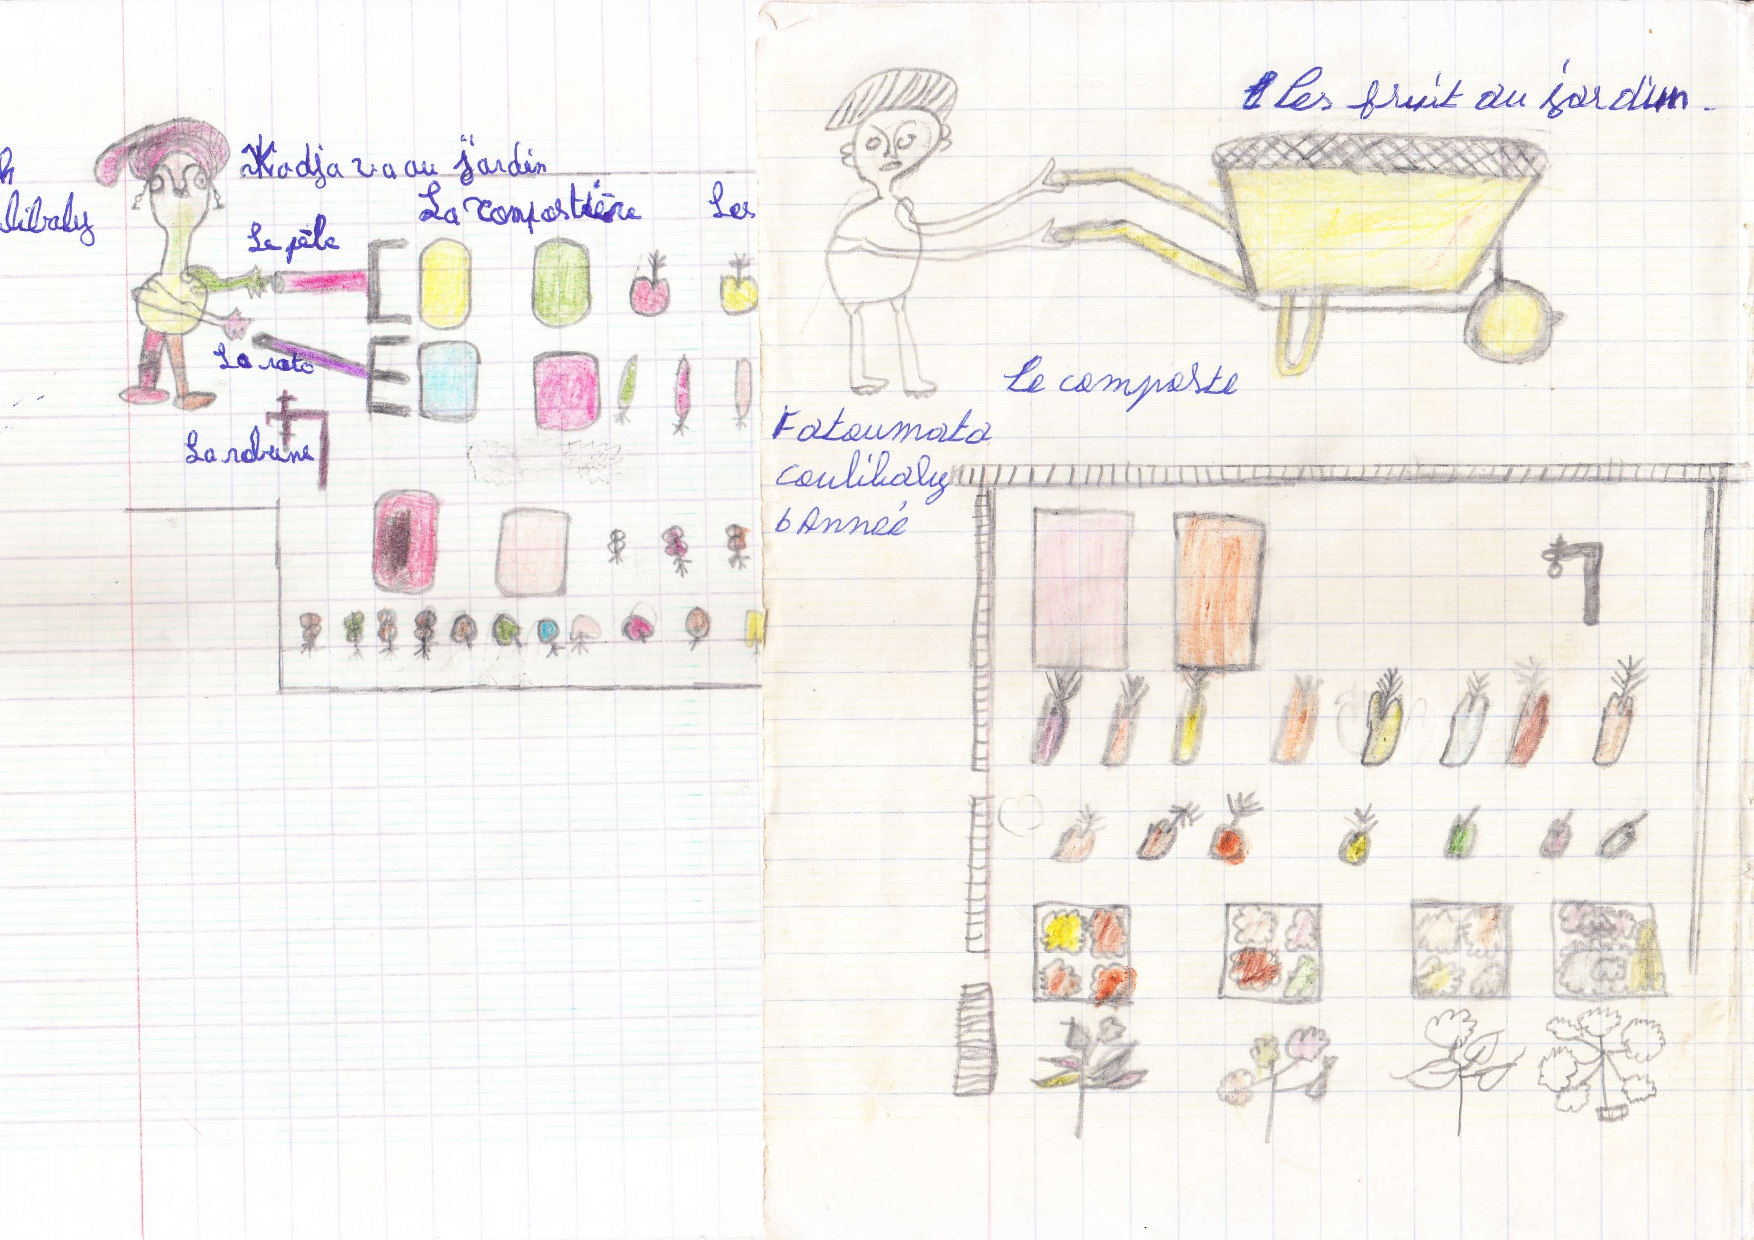 libaly
Kadja va au jardin
La compostière
Les
Le pèle
La rato
La robine
Les fruit au jardin.
Le composte
Fatoumata
coulibaly
6 Année